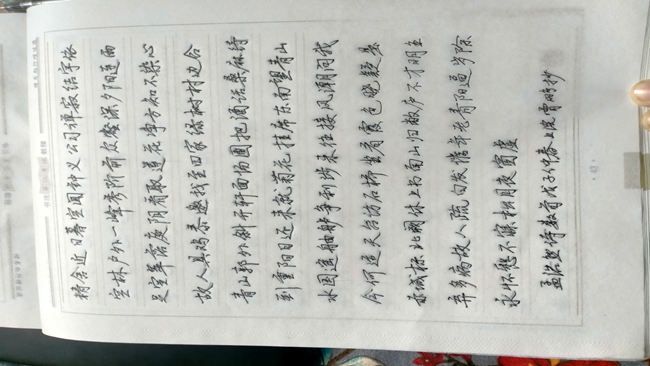 精舍近日暮空闻钟义公习禅寂结宇依
空林户外一峰秀阶前众壑深夕阳连雨
足空翠落庭阴看取莲花净方知不染心
故人具鸡黍邀我至田家绿树村边合
青山郭外斜开轩面场圃把酒话桑麻待
到重阳日还来就菊花挂席东南望青山
水国遥舳舻争利涉来往接风潮问我
今何适天台访石桥坐看霞色晓疑是
赤城标北阙休上书南山归敝庐不才明主
弃多病故人疏白发催年老青阳逼岁除
永怀愁不寐松月夜窗虚
孟浩然诗数首戊子仲春